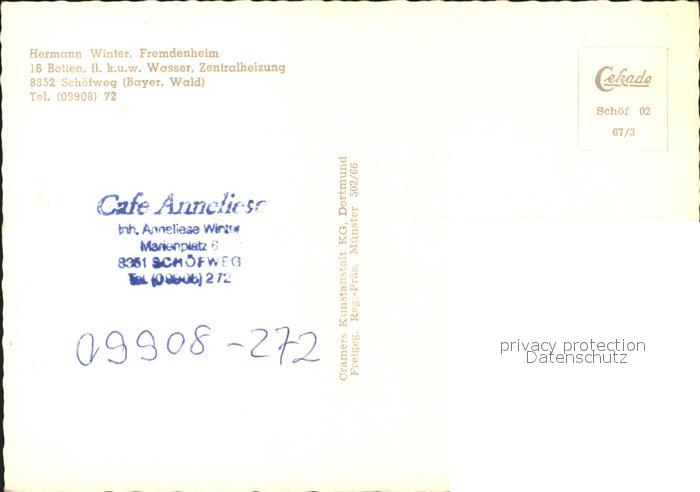 Hermann Winter, Fremdenheim
16 Betten, fl. k.u.w. Wasser, Zentralheizung
8352 Schöfweg (Bayer. Wald)
Tel. (09908) 72
Cekade
Schöf 02
67/3
Cafe Anneliese
Inh. Anneliese Winter
Marienplatz 6
8351 SCHÖFWEG
Tel. (09908) 2 72
09908-272
Cramers Kunstanstalt KG, Dortmund
Freigeg. Reg.-Präs. Münster 502/66
privacy protection
Datenschutz